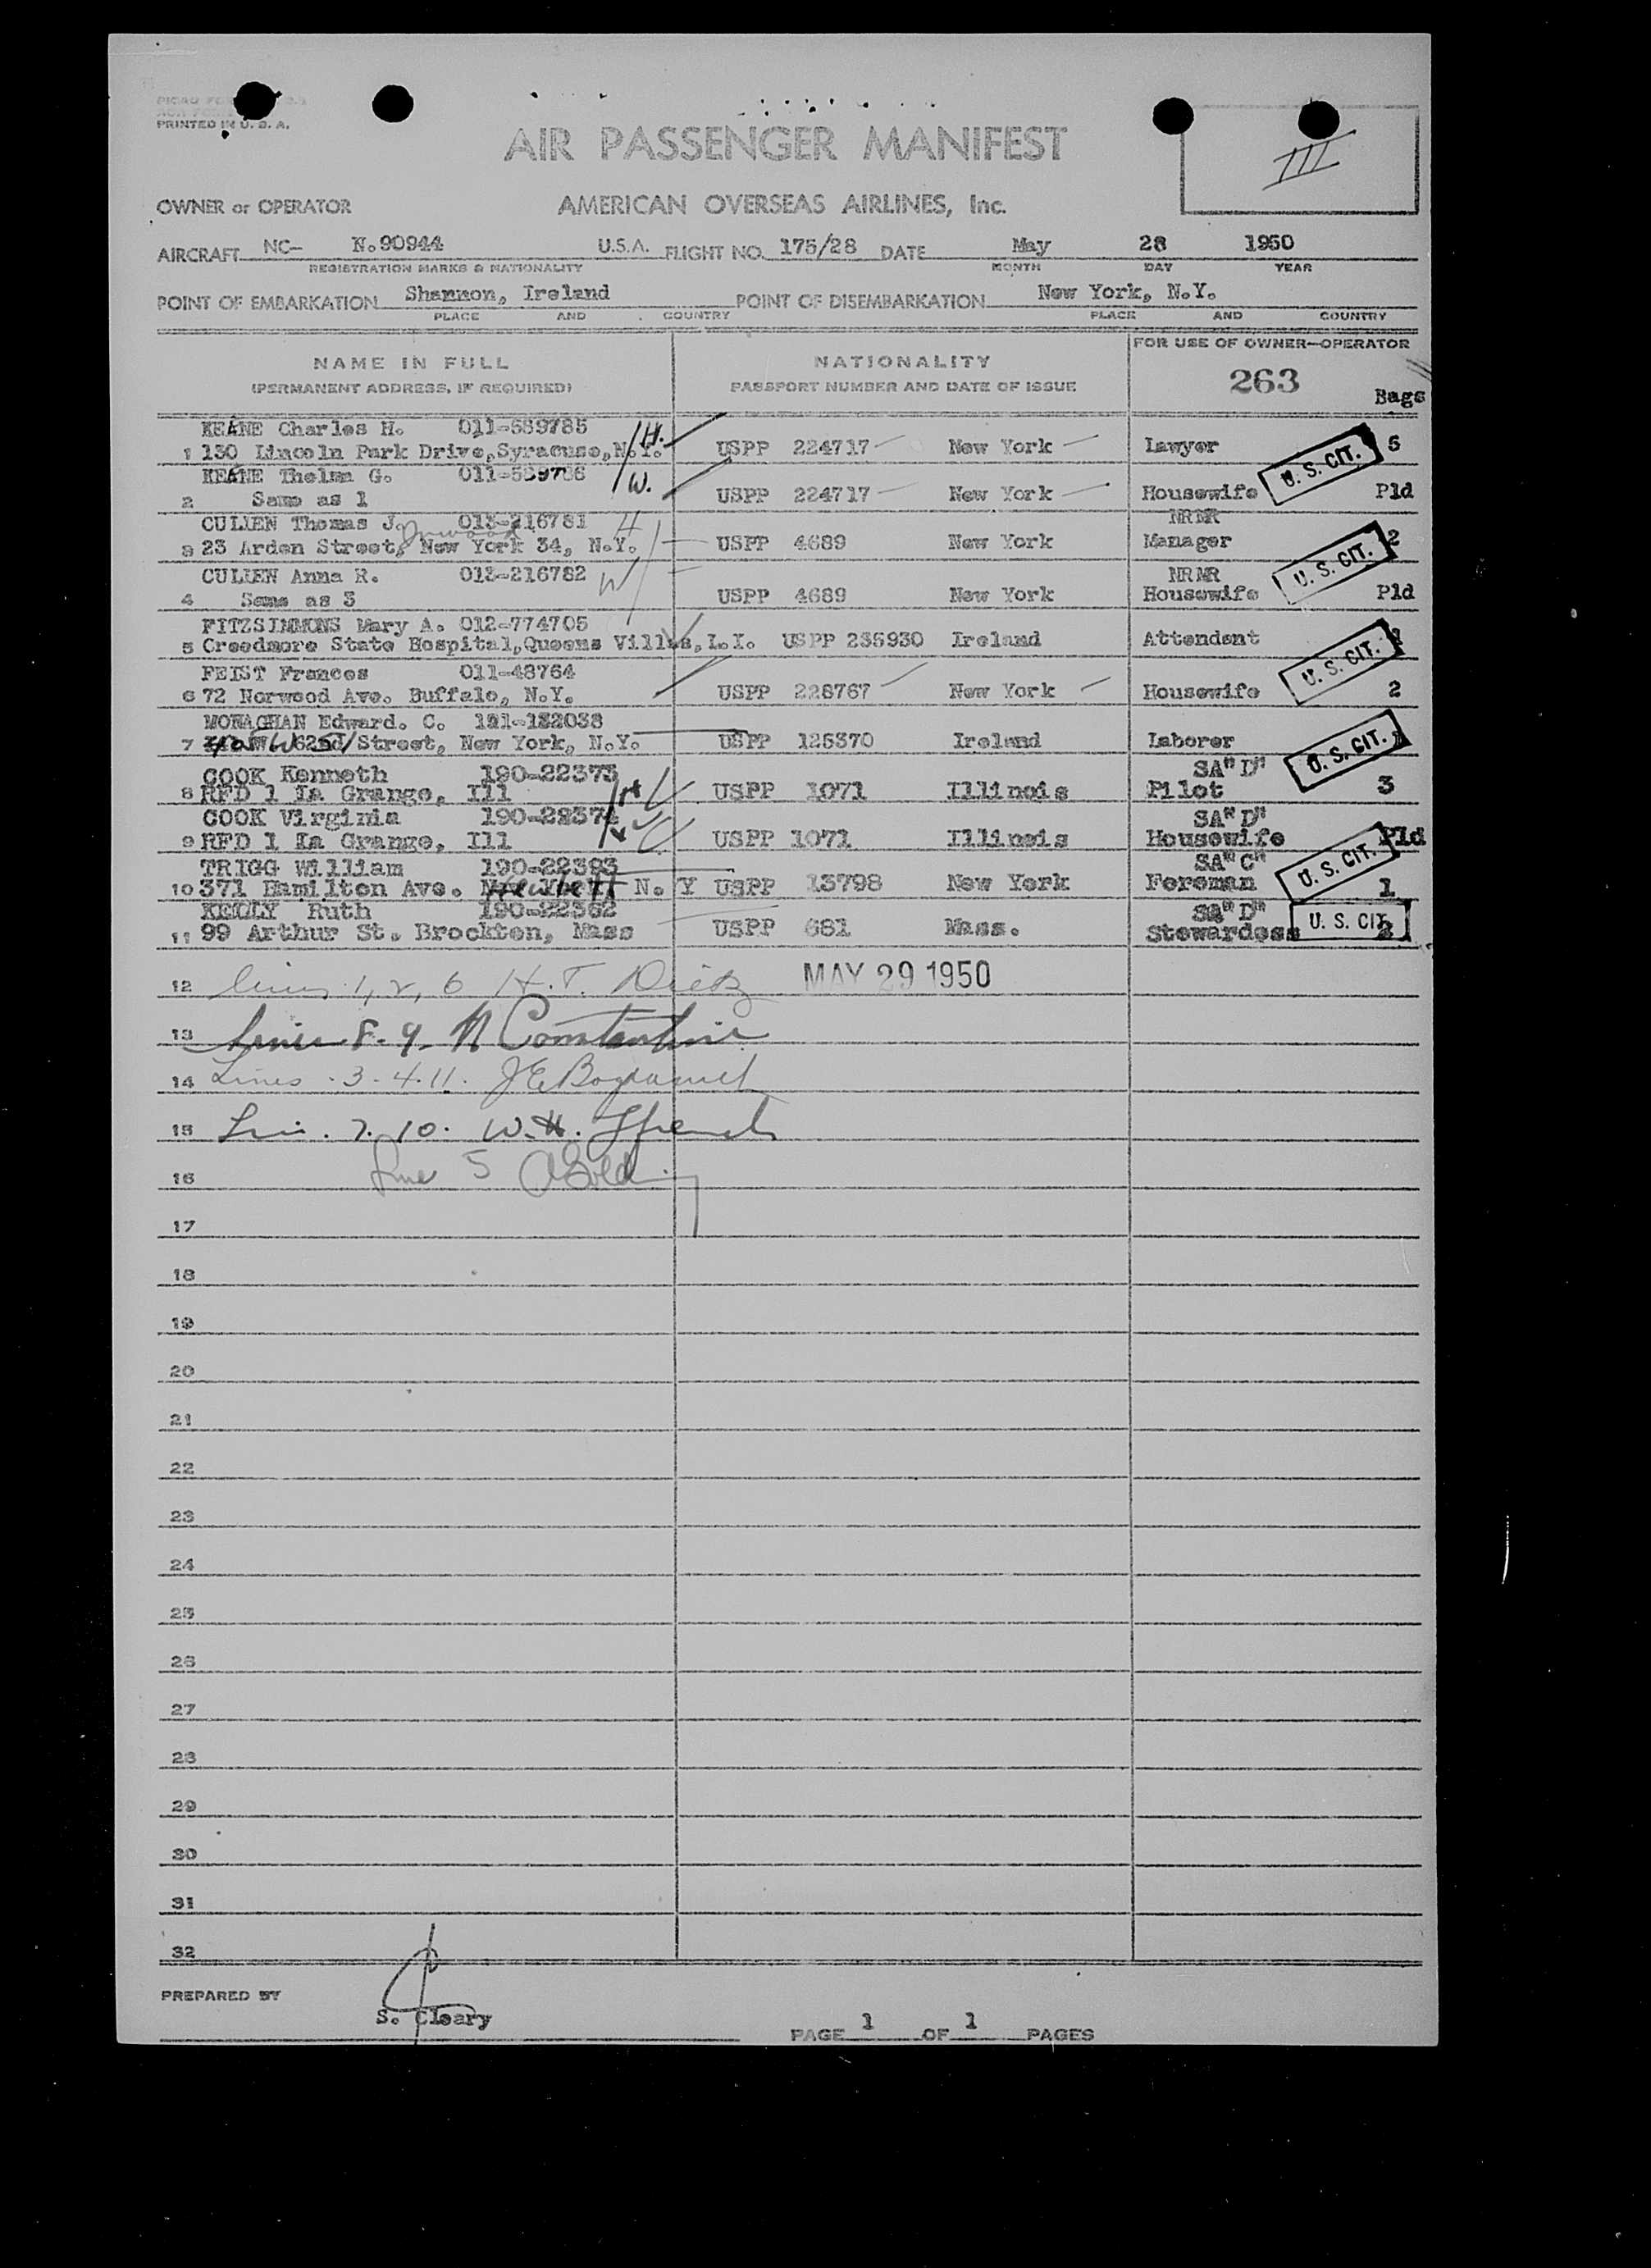 PRINTED IN U. S. A.
III
AIR PASSENGER MANIFEST
OWNER or OPERATOR AMERICAN OVERSEAS AIRLINES, Inc.
AIRCRAFT NC- N.90944 U.S.A. FLIGHT NO. 175/28 DATE May 28 1950
REGISTRATION MARKS & NATIONALITY MONTH DAY YEAR
POINT OF EMBARKATION Shannon, Ireland POINT OF DISEMBARKATION New York, N.Y.
PLACE AND COUNTRY PLACE AND COUNTRY
NAME IN FULL NATIONALITY FOR USE OF OWNER-OPERATOR
(PERMANENT ADDRESS, IF REQUIRED) PASSPORT NUMBER AND DATE OF ISSUE 263 Bags
KEANE Charles H. 011-589785 H.
1 130 Lincoln Park Drive, Syracuse, N.Y. USPP 224717 New York Lawyer U. S. CIT. 5
KEANE Thelma G. 011-589786 W.
2 Same as 1 USPP 224717 New York Housewife Pld
CULLEN Thomas J. 013-216781 H NR NR
3 23 Arden Street, Inwood New York 34, N.Y. USPP 4689 New York Manager U. S. CIT. 2
CULLEN Anna R. 013-216782 W NR NR
4 Same as 3 USPP 4689 New York Housewife Pld
FITZSIMMONS Mary A. 012-774705
5 Creedmore State Hospital, Queens Village, L.I. USPP 235930 Ireland Attendant U. S. CIT.
FEIST Frances 011-48764
6 72 Norwood Ave. Buffalo, N.Y. USPP 228767 New York Housewife 2
MONAGHAN Edward. C. 121-132038
7 Street, New York, N.Y. USPP 125370 Ireland Laborer U. S. CIT.
COOK Kenneth 190-22373 H SA"D"
8 RFD 1 La Grange, Ill USPP 1071 Illinois Pilot 3
COOK Virginia 190-22374 SA"D"
9 RFD 1 La Grange, Ill USPP 1071 Illinois Housewife Pld
TRIGG William 190-22393 SA"C"
10 371 Hamilton Ave. N. Y USPP 13798 New York Foreman U. S. CIT. 1
KELLY Ruth 190-22362 SA"D"
11 99 Arthur St. Brockton, Mass USPP 681 Mass. Stewardess U. S. CIT. 2
12 Lines 1, 2, 6 H. T. Dietz MAY 29 1950
13 Lines 8. 9. N Constantine
14 Lines . 3 . 4 . 11.
15 7. 10. W. H.
16 Line 5
17
18
19
20
21
22
23
24
25
26
27
28
29
30
31
32
PREPARED BY
S. Cleary
PAGE 1 OF 1 PAGES